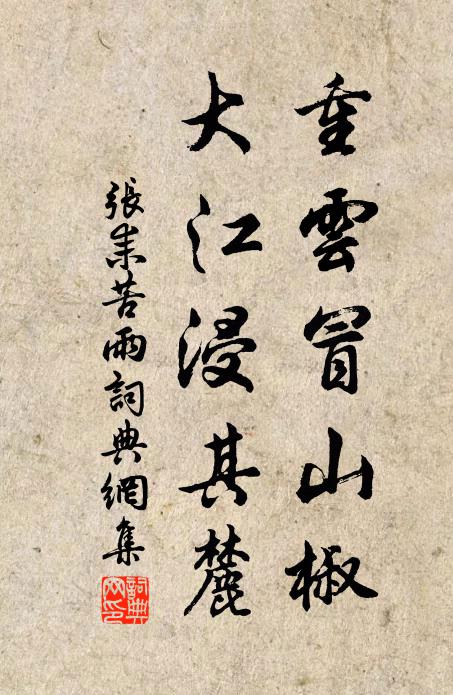 重雲冒山椒
大江浸其麓
張耒苦雨詞典網集
詞典网印